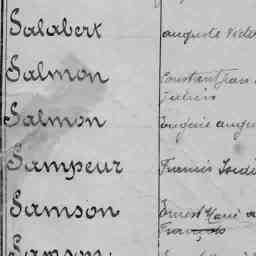 Salabert auguste Victo
Salmon Constant Jean
Julien
Salmon Eugène augu
Sampeur Francis Isid
Samson Ernest René
François
Samson